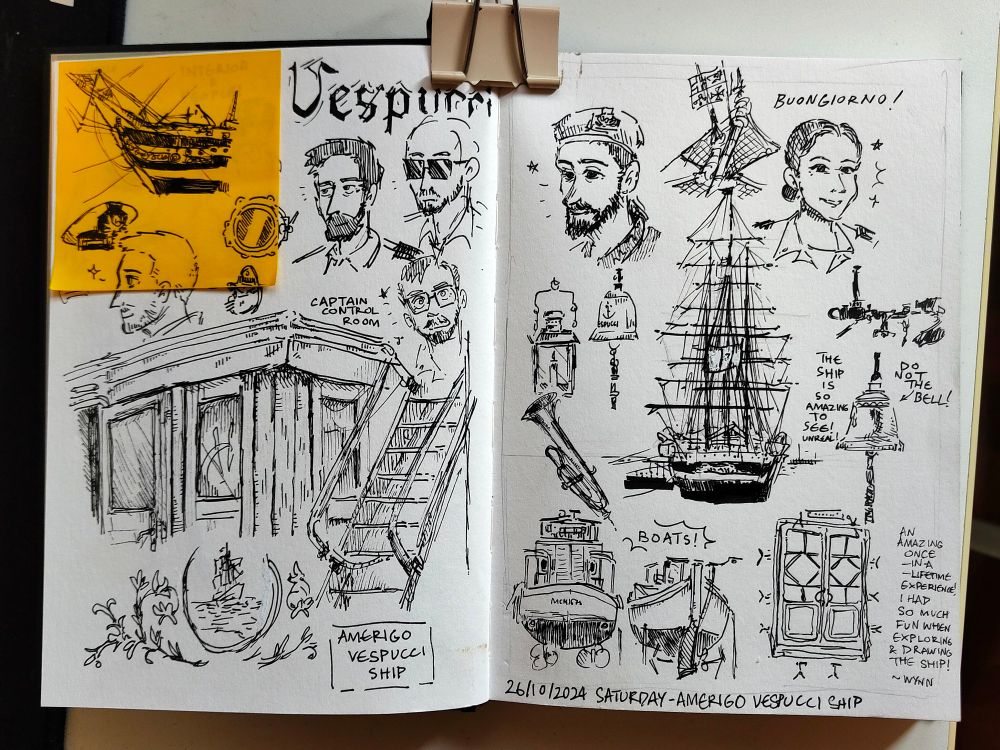 Vespucci
CAPTAIN
CONTROL
ROOM
AMERIGO
VESPUCCI
SHIP
BUONGIORNO!
THE
SHIP
IS
SO
AMAZING
TO
SEE!
UNREAL!
DO
NOT
THE
BELL!
BOATS!
AN
AMAZING
ONCE
-IN A
-LIFETIME
EXPERIENCE!
I HAD
SO MUCH
FUN WHEN
EXPLORING
& DRAWING
THE SHIP!
~ WYNN
26/10/2024 SATURDAY-AMERIGO VESPUCCI SHIP